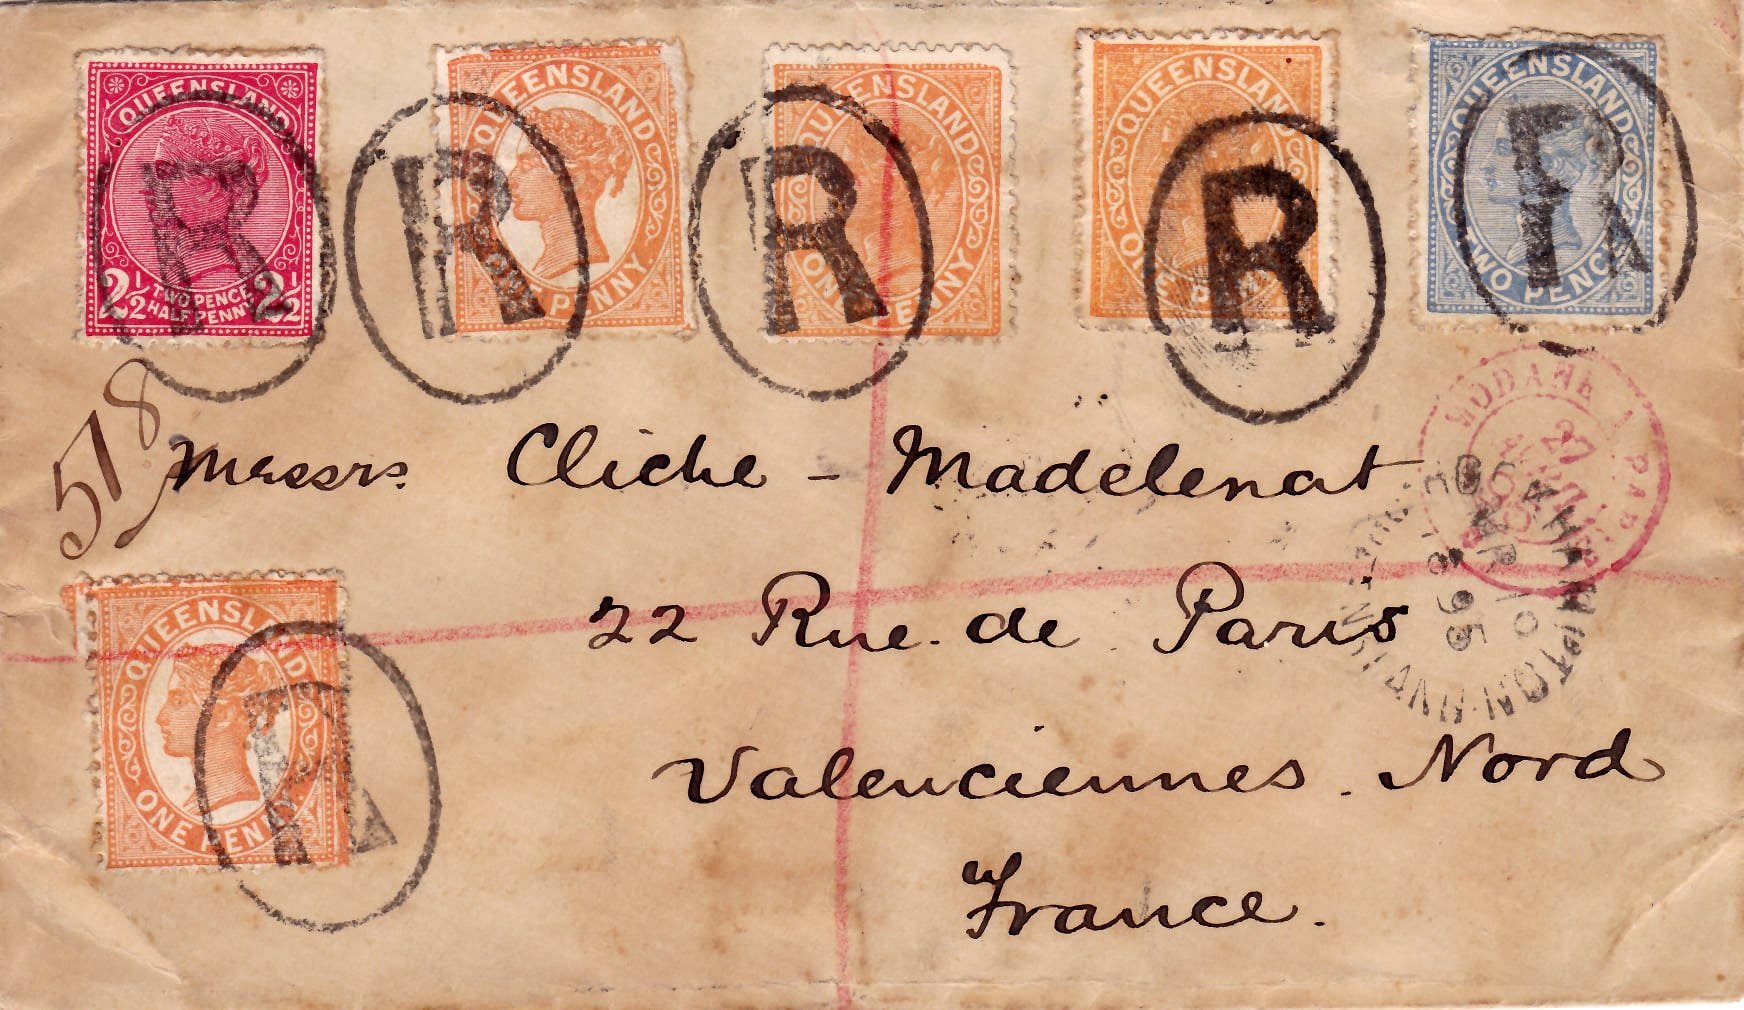 QUEENSLAND
2½ TWO PENCE HALF PENNY 2½
R
QUEENSLAND
ONE PENNY
R
QUEENSLAND
ONE PENNY
R
QUEENSLAND
ONE PENNY
R
QUEENSLAND
TWO PENCE
R
518
MODANE A PARIS
Messrs. Cliche - Madelenat
MR 10
95
22 Rue de Paris
Valenciennes. Nord
France.
QUEENSLAND
ONE PENNY
R